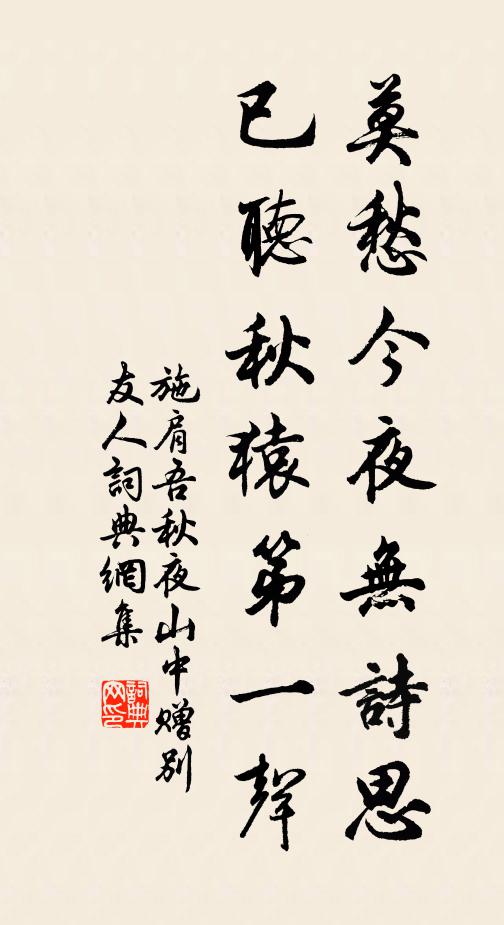 莫愁今夜無詩思
已聽秋猿第一聲
施肩吾秋夜山中贈別
友人詞典網集
詞典
网印